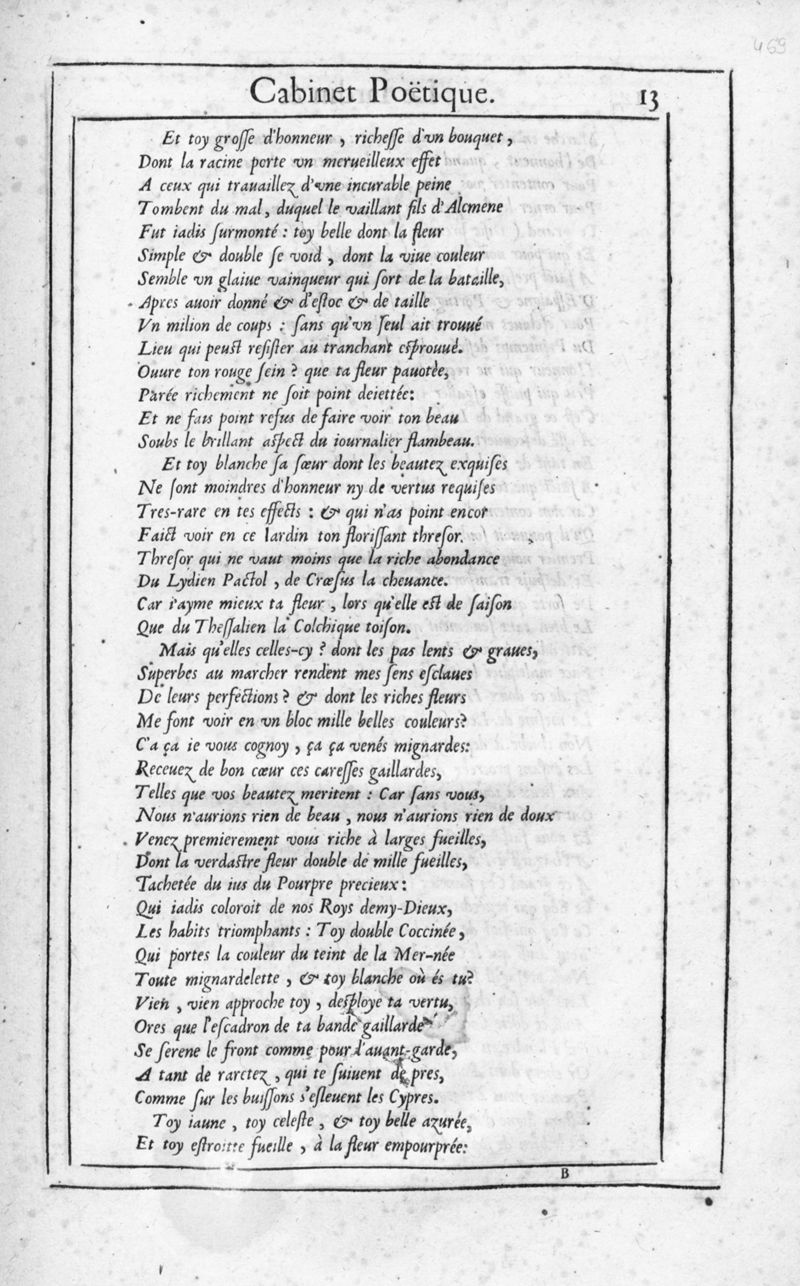 469
Cabinet Poëtique. 13
Et toy groſſe d'honneur , richeſſe d'vn bouquet ,
Dont la racine porte vn merueilleux effet
A ceux qui trauaillez d'vne incurable peine
Tombent du mal, duquel le vaillant fils d'Alcmene
Fut iadis ſurmonté : toy belle dont la fleur
Simple & double ſe void , dont la viue couleur
Semble vn glaiue vainqueur qui ſort de la bataille,
Apres auoir donné & d'eſtoc & de taille
Vn milion de coups : ſans qu'vn ſeul ait trouué
Lieu qui peuſt reſiſter au tranchant eſprouué.
Ouure ton rouge ſein ? que ta fleur pauotée,
Parée richement ne ſoit point deiettée:
Et ne fais point refus de faire voir ton beau
Soubs le brillant aſpect du iournalier flambeau.
Et toy blanche ſa ſœur dont les beautez exquiſes
Ne ſont moindres d'honneur ny de vertus requiſes
Tres-rare en tes effects : & qui n'as point encor
Faict voir en ce Iardin ton floriſſant threſor.
Threſor qui ne vaut moins que la riche abondance
Du Lydien Pactol , de Crœſus la cheuance.
Car i'ayme mieux ta fleur , lors qu'elle eſt de ſaiſon
Que du Theſſalien la Colchique toiſon.
Mais qu'elles celles-cy ? dont les pas lents & graues,
Superbes au marcher rendent mes ſens eſclaues
De leurs perfections ? & dont les riches fleurs
Me font voir en vn bloc mille belles couleurs?
C'a ça ie vous cognoy , ça ça venés mignardes:
Receuez de bon cœur ces careſſes gaillardes,
Telles que vos beautez meritent : Car ſans vous,
Nous n'aurions rien de beau , nous n'aurions rien de doux
Venez premierement vous riche à larges fueilles,
Dont la verdaſtre fleur double de mille fueilles,
Tachetée du ius du Pourpre precieux:
Qui iadis coloroit de nos Roys demy-Dieux,
Les habits triomphants : Toy double Coccinée,
Qui portes la couleur du teint de la Mer-née
Toute mignardelette , & toy blanche où és tu?
Vien , vien approche toy , deſploye ta vertu,
Ores que l'eſcadron de ta bande gaillarde
Se ſerene le front comme pour l'auant-garde,
A tant de raretez , qui te ſuiuent de pres,
Comme ſur les buiſſons s'eſleuent les Cypres.
Toy iaune , toy celeſte , & toy belle azurée,
Et toy eſtroitte fueille , à la fleur empourprée:
B